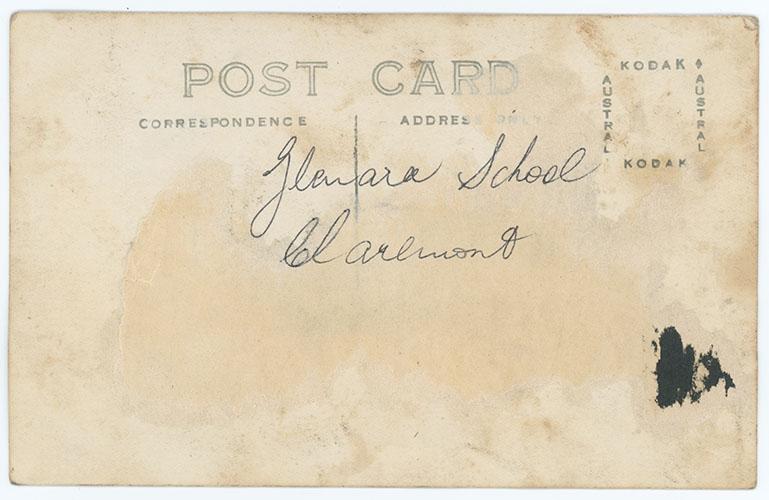 POST CARD
CORRESPONDENCE
ADDRESS ONLY
KODAK
AUSTRAL
AUSTRAL
KODAK
Glenara School
Claremont